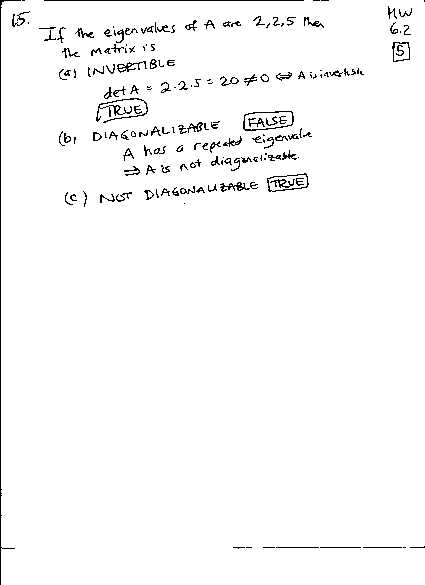 15.
If the eigenvalues of A are 2,2,5 then
the matrix is
HW
6.2
5
(a) INVERTIBLE
det A = 2·2·5 = 20 ≠ 0 ⇔ A is invertible
TRUE
(b) DIAGONALIZABLE FALSE
A has a repeated eigenvalue
⇒ A is not diagonalizable.
(c) NOT DIAGONALIZABLE TRUE